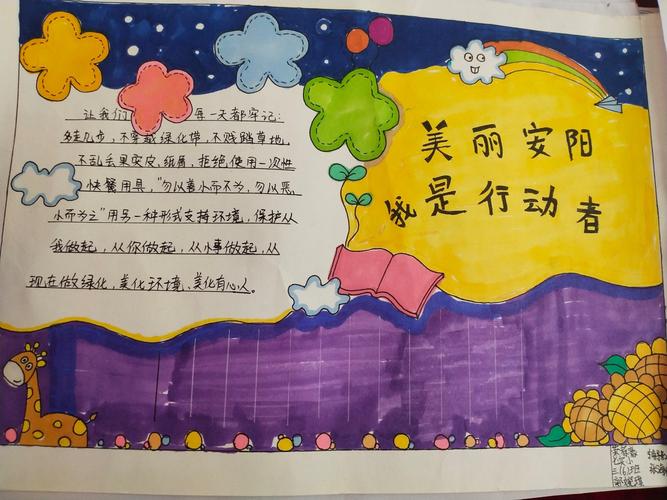 美丽安阳
我是行动者
让我们 每一天都牢记:
多走几步,不穿越绿化带,不践踏草地,
不乱丢果实皮,纸屑,拒绝使用一次性
快餐用具,"勿以善小而不为,勿以恶
小而为之"用另一种形式支持环境,保护从
我做起,从你做起,从小事做起,从
现在做绿化,美化环境、美化有心人。